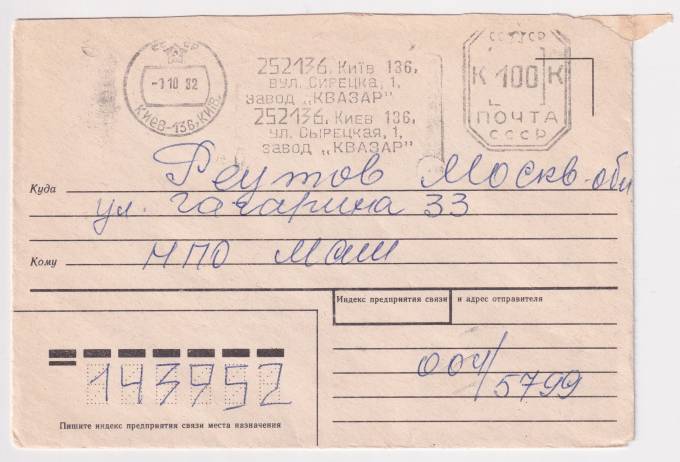 СССР
-1 10 92
КИЕВ-136, КИЇВ
252136. Київ 136,
вул. Сирецка, 1,
завод „КВАЗАР"
252136. Киев 136,
ул. Сырецкая, 1,
завод „КВАЗАР"
СССР
К 100 К
ПОЧТА
СССР
Куда Реутов Москв-обл
ул. Гагарина 33
Кому НПО Маш
Индекс предприятия связи и адрес отправителя
004/5799
143952
Пишите индекс предприятия связи места назначения